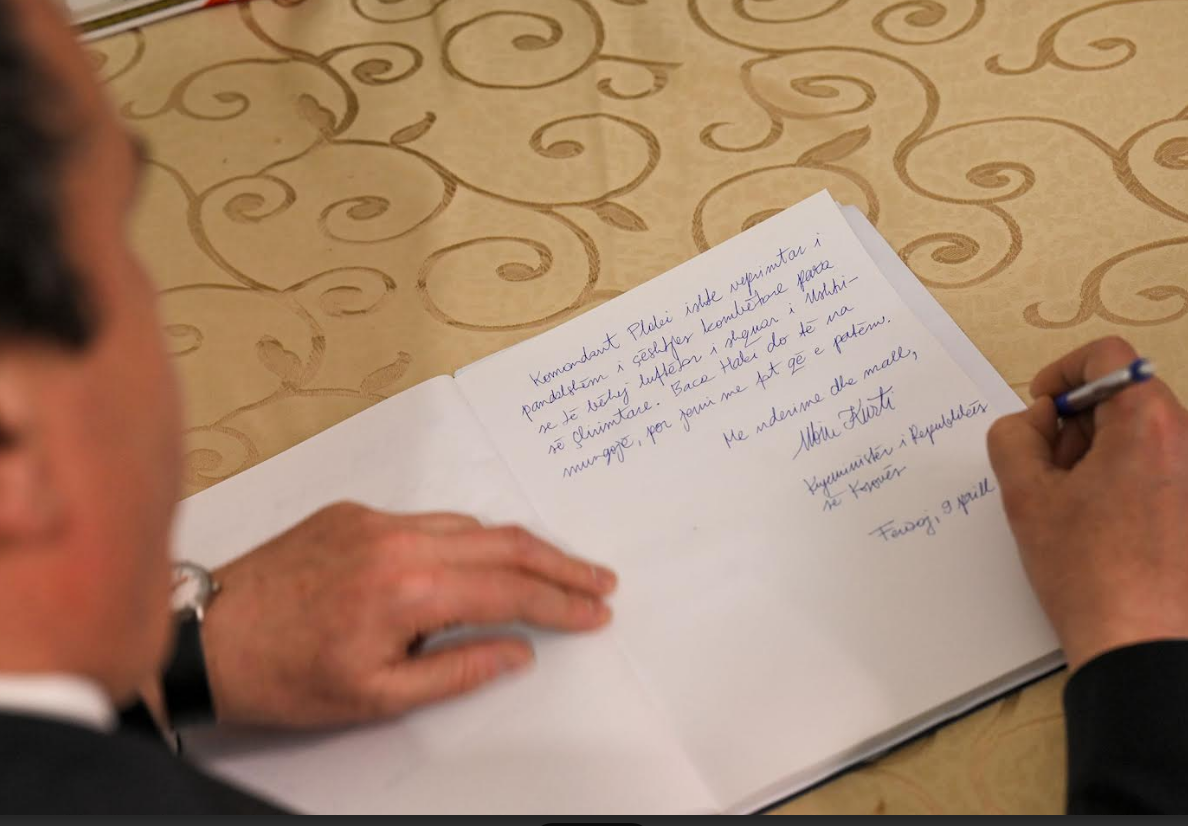 Komandant Plaku ishte veprimtar i
pandalshëm i çështjes kombëtare para
se të bëhej luftëtar i shquar i Ushtri-
së Çlirimtare. Baca Halil do të na
mungojë, por jemi me fat që e patëm.
Me nderime dhe mall,
Albin Kurti
Kryeministër i Republikës
së Kosovës
Ferizaj, 9 prill